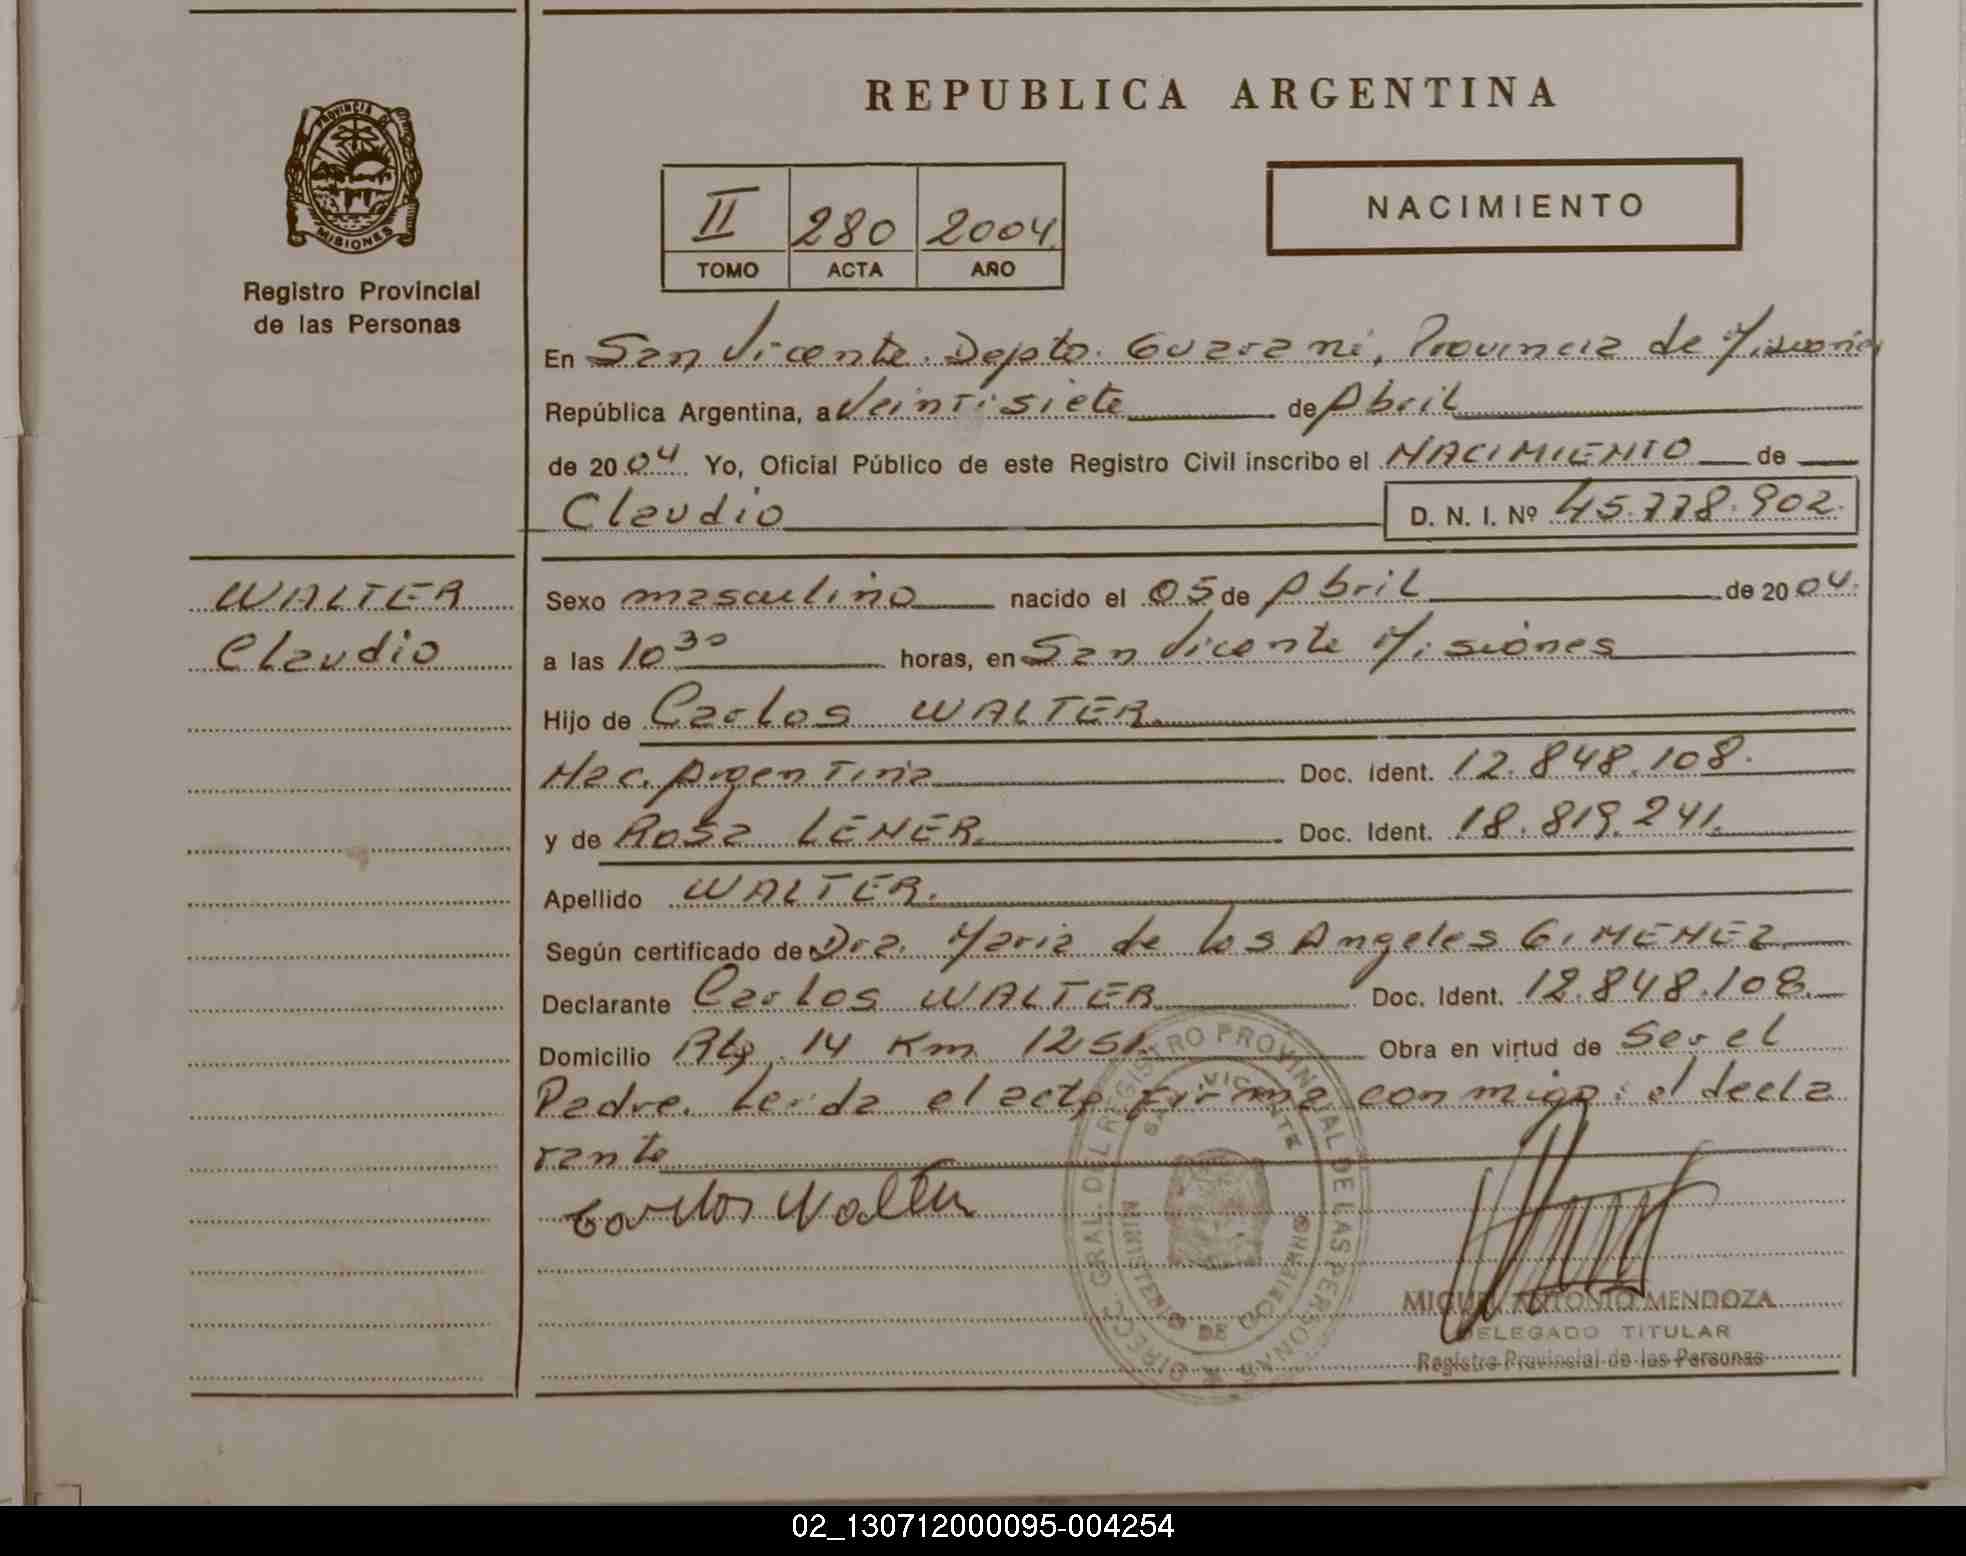 REPUBLICA ARGENTINA
PROVINCIA DE
MISIONES
Registro Provincial
de las Personas
II 280 2004
TOMO ACTA AÑO
NACIMIENTO
En San Vicente. Depto. Guarani, Provincia de Misiones
República Argentina, a Veintisiete de Abril
de 2004 Yo, Oficial Público de este Registro Civil inscribo el NACIMIENTO de
Claudio D. N. I. Nº 45.778.902.
WALTER
Claudio
Sexo masculino nacido el 05 de Abril de 2004.
a las 10 30 horas, en San Vicente Misiones
Hijo de Carlos WALTER.
Nac. Argentina Doc. Ident. 12.848.108.
y de Rosa LENER. Doc. Ident. 18.819.241.
Apellido WALTER.
Según certificado de Dra. Maria de los Angeles GIMENEZ
Declarante Carlos WALTER Doc. Ident. 12.848.108.
Domicilio 14 Km 1251. Obra en virtud de Ser el
Padre. Leida el acta firma conmigo: el decla
rante
Carlos Walter
DIRECC. GRAL. DEL REGISTRO PROVINCIAL DE LAS PERSONAS
SAN VICENTE
MINISTERIO DE GOBIERNO
MIGUEL ANTONIO MENDOZA
DELEGADO TITULAR
Registro Provincial de las Personas
02_130712000095-004254